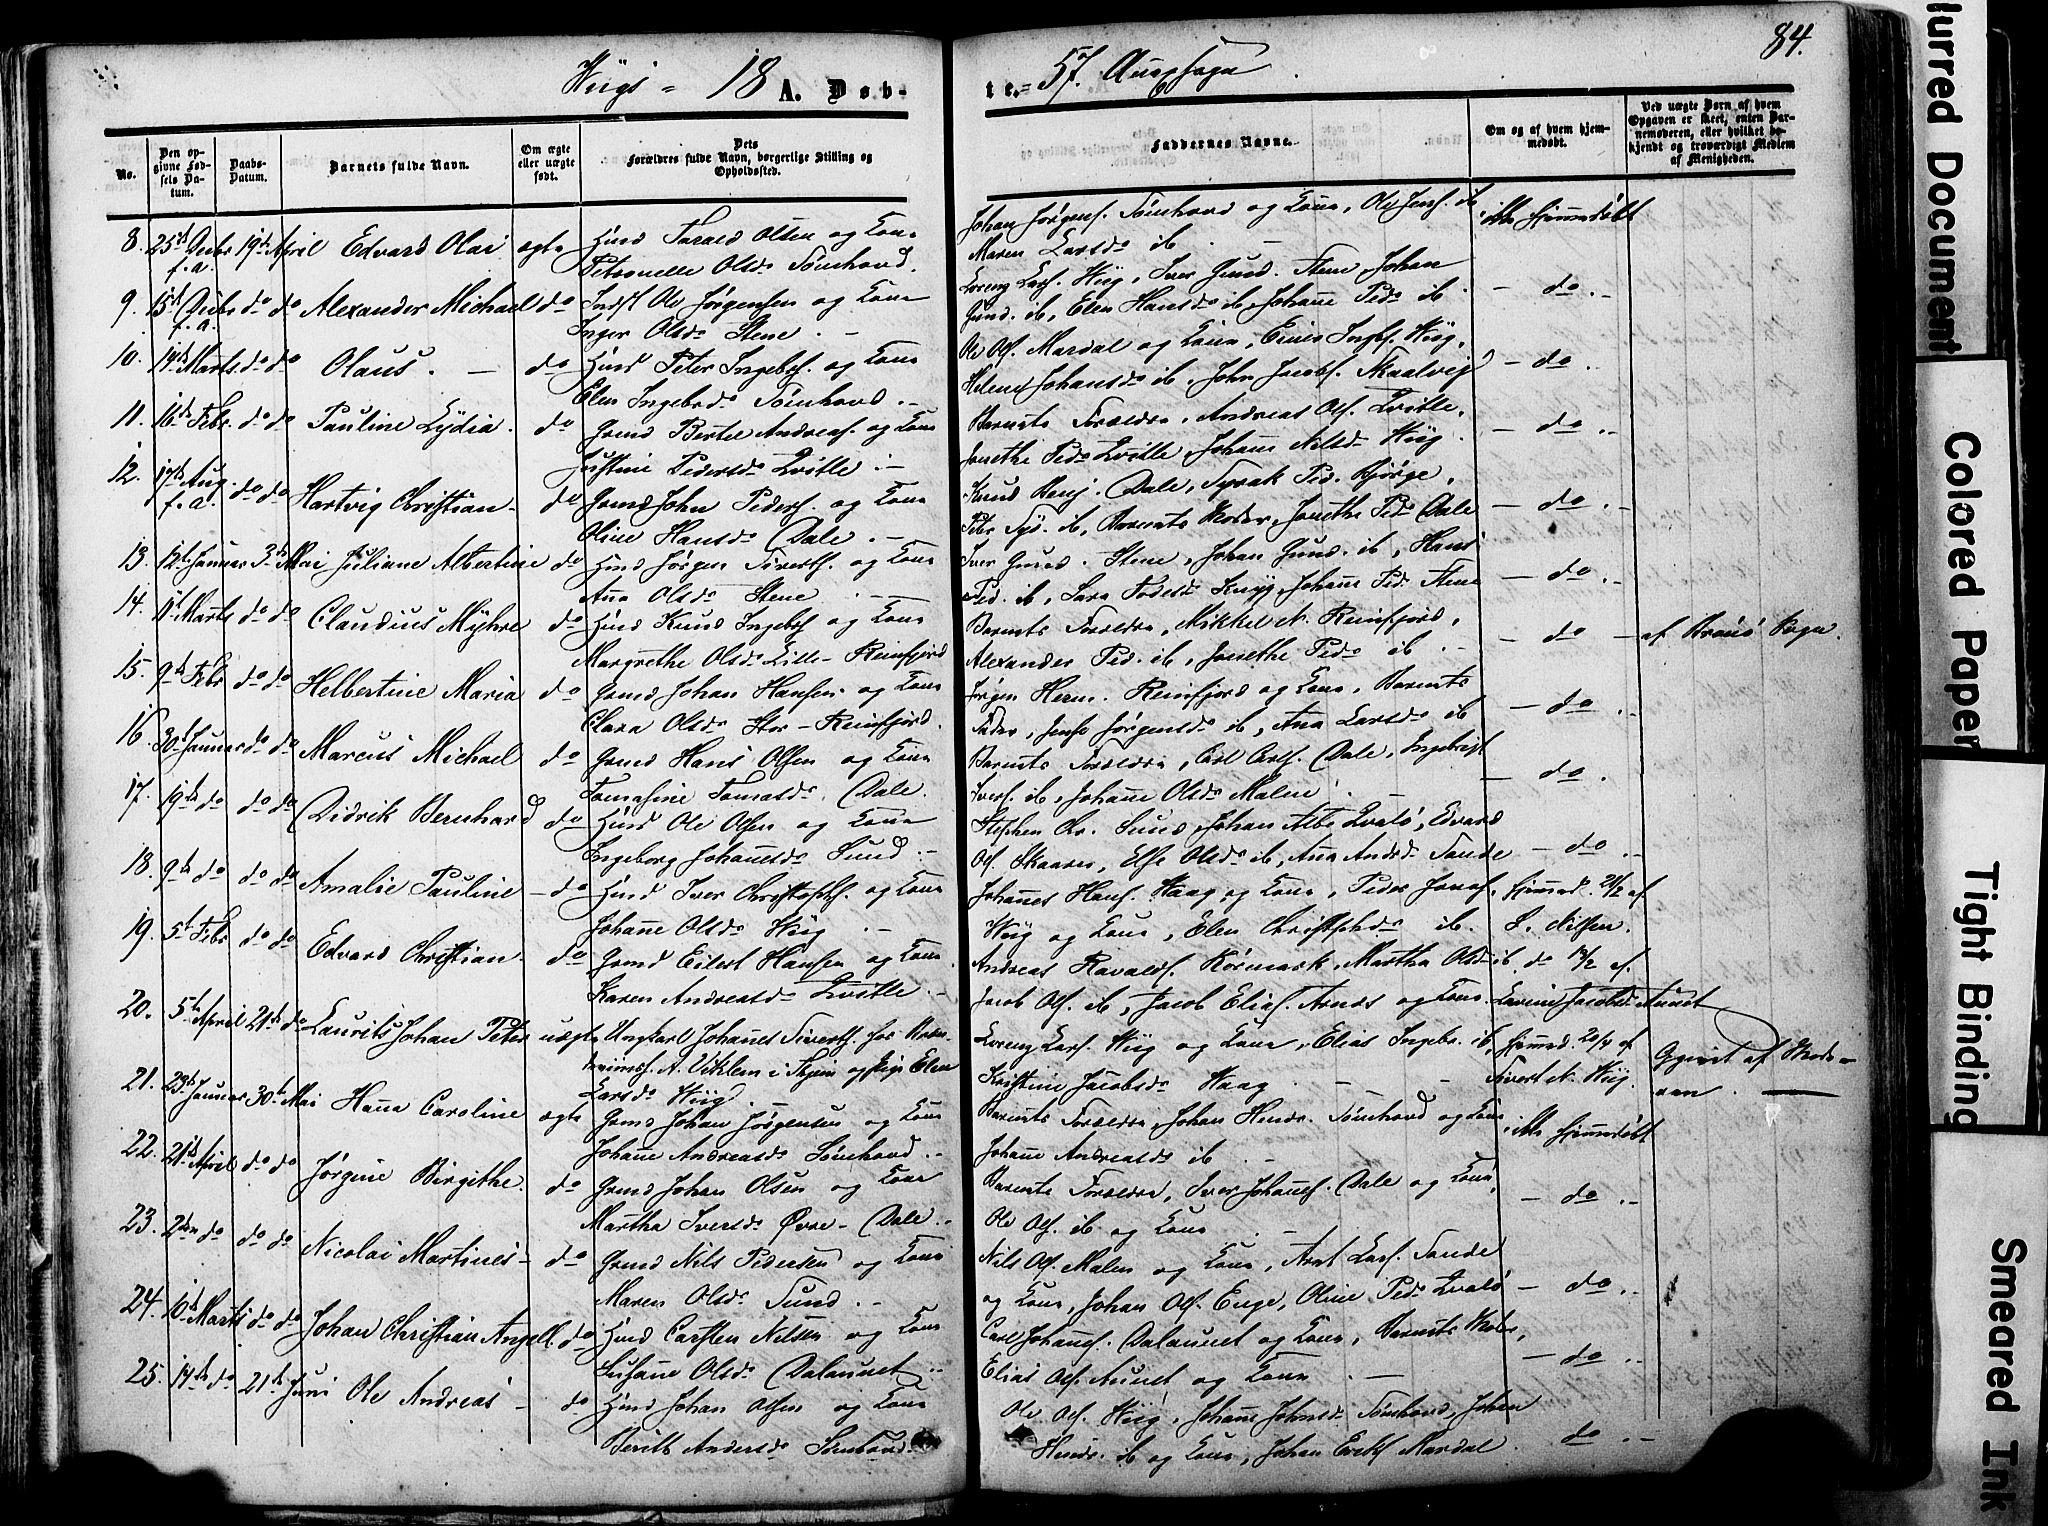 Wiigs = 18 A. Døb-
te. = 57. Auxsogn
84.
No.
Den opgivne Fødsels Datum.
Daabs-Datum.
Barnets fulde Navn.
Om ægte eller uægte født.
Dets Forældres fulde Navn, borgerlige Stilling og Opholdssted.
Faddernes Navne.
Om og af hvem hjemmedøbt.
Ved uægte Børn af hvem Opgaven er skeet, enten Barnemoderen, eller hvilket bekjendt og troværdigt Medlem af Menigheden.
8. 25de Decbr f.a. 19de April Edvard Olai ægte Huusmd Tarald Olsen og Kone
Petronelle Olsdr Sørnhovd.
Johan Jørgens. Sørnhovd og Kone, Ole Jens. ib
Maren Larsdr ib.
ikke hjemmedøbt
9. 15de Decbr f.a. do do Alexander Michael do Indst Ole Jørgensen og Kone
Inger Olsdr Stene.
Lorenz Lars. Wiig, Iver Gund. Stene, Johan
Gund. ib, Elen Hansdr ib, Johane Pedr ib.
do
10. 14de Marts do do Olaus. do Huusmd Peter Ingebs. og Kone
Elen Ingebrdr Sørnhovd.
Ole Ols. Mardal og Kone,
Helene Johansdr ib, John Jacobs. Skaalvig
do
11. 16de Febr do do Pauline Lydia. do Grmd Berteil Andreas. og Kone
Justine Pedersdr Qvitle.
Barnets Forældre, Andreas Ols. Qvitle,
Jonethe Pedr Qvitle, Johane Nilsdr Wiig.
do
12. 17de Aug. f.a. do do Hartvig Christian do Grmd John Peders. og Kone
Oline Hansdr Dale.
Knud Benj. Dale, Ped. Bjørge,
Peter ib, Barnets Moder, Jonethe Pedr Dale
do
13. 12te Januar 3de Mai Juliane Albertine do Huusmd Jørgen Siverts. og Kone
Ana Olsdr Stene.
Iver Gund. Stene, Johan Gund. ib, Hans
Ped. ib, Sara Johane Ped. Stene
do
14. 11te Marts do do Claudius Myhre do Huusmd Knud Ingebs og Kone
Margrethe Olsdr Lille-Reinfjord
Barnets Forældre, Mikkel N. Reinfjord,
Alexander Ped. ib, Jonethe Pedr ib.
do
af Brønø Sogn.
15. 9de Febr do do Helbertine Maria do Grmd Johan Hansen og Kone
Clara Olsdr Stor-Reinfjord.
Jørgen Herm. Reinfjord og Kone, Barnets
Fader, Jørgensdr ib, Ana Larsdr ib
do
16. 30te Januar do do Marcus Michael do Grmd Hans Olsen og Kone
Tomasine Tomasdr Dale.
Barnets Forældre, Carl Carls. Dale, Ingebrigt
Ivers. ib, Johane Olsdr Malene.
do
17. 19de do do do Didrik Bernhard do Huusmd Ole Olsen og Kone
Ingeborg Johanesdr Sund.
Stephen Chr. Sund, Johan Qvalø, Edvard
Ols. Skaaren, Else Olsdr ib, Ana Andsdr Sande
do
18. 9de do do do Amalie Pauline do Huusmd Iver Christophs. og Kone
Johane Olsdr Wiig.
Johanes Hans. Haag og Kone, Peder Jonas.
Wiig og Kone, Elen Christophdr ib.
hjemmed. 21/2 af
S. Nilsen.
19. 5te Febr do do Edvard Christian. do Grmd Eilert Hansen og Kone
Karen Andreasdr Qvitle.
Andreas Kørmark, Martha Olsdr ib,
Jacob Ols. ib, Jacob Elias. Arnes og Kone
do 12/2 af
Jacobsdr Aunet
20. 5te April 21de do Laurits Johan Peter uægte Ungkarl Johanes Siverts. hos
A. Viklem i og Pige Elen
Larsdr Wiig
Lorenz Lars. Wiig og Kone, Elias Ingebr. ib,
Kristine Jacobsdr Haag.
hjemmed. 20/4 af
Sivert N. Wiig.
Opgivet af Mode-
ren.
21. 23de Januar 30te Mai Hana Caroline ægte Grmd Johan Jørgensen og Kone
Johane Andreasdr Sørnhovd.
Barnets Forældre, Johan Hendr. Sørnhovd og Kone,
Johane Andreasdr ib.
ikke hjemmedøbt
22. 21de April do do Jørgine Birgithe. do Grmd Johan Olsen og Kone
Martha Iversdr Øvre-Dale.
Barnets Forældre, Iver Johanes. Dale og Kone,
Ole Ols. ib og Kone
do
23. 2den do do do Nicolai Martines do Grmd Nils Pedersen og Kone
Maren Olsdr Sund.
Nils Ols. Malen og Kone, Arnt Lars. Sande
og Kone, Johan Ols. Enge, Oline Pedr Qvalø
do
24. 10de Marts do do Johan Christian Angell. do Huusmd Carsten Nilsen og Kone
Susane Olsdr Dalaunet
Carl Johans. Dalaunet og Kone, Barnets Moder,
Elias Ols. Aunet og Kone.
do
25. 14de do 21de Juni Ole Andreas do Huusmd Johan Olsen og Kone
Berith Andersdr Sørnhovd
Ole Ols. Wiig, Johane Johnsdr Sørnhovd, Johan
Hendr. ib og Kone, Johan Eriks Mardal.
do
Blurred Document
Colored Paper
Tight Binding
Smeared Ink